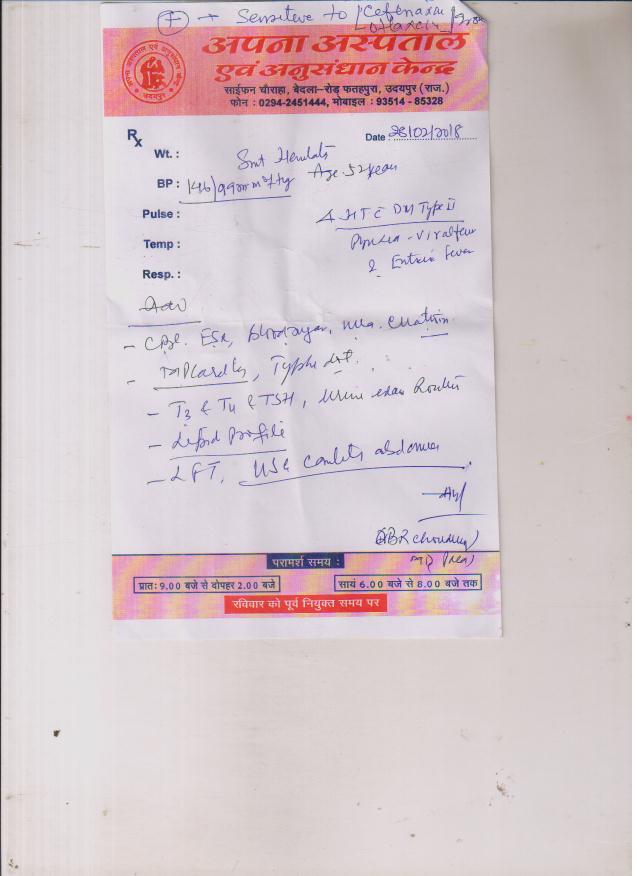 (F) → Sensitive to [Cefenaxin
Ofloxcin] from
अपना अस्पताल
एवं अनुसंधान केन्द्र
साईफन चौराहा, बेदला-रोड़ फतहपुरा, उदयपुर (राज.)
फोन : 0294-2451444, मोबाइल : 93514 - 85328
Rx
Date 28/02/2018
Wt. :
Smt Hemlata
BP : 146/99 mm of Hg Age 52 years
Pulse : HT C DM Type II
Pyrexia - Viral fever
Temp :
& Enteric fever
Resp. :
Adv
- CBC. ESR, Blood sugar, urea. Creatinin
- MP Card by, Typhi dot.
- T3 & T4 & TSH, Urine exam Routin
- Lipid profile
- LFT, USG complete abdomen
BR Choudhary
परामर्श समय :
प्रातः 9.00 बजे से दोपहर 2.00 बजे
सायं 6.00 बजे से 8.00 बजे तक
रविवार को पूर्व नियुक्त समय पर